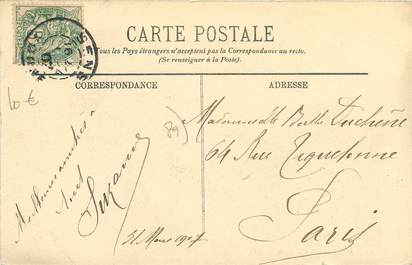 CARTE POSTALE
Tous les Pays étrangers n'acceptent pas la Correspondance au recto.
(Se renseigner à la Poste).
CORRESPONDANCE
ADRESSE
SENS
10 €
89)
à
Suzanne
31 Mars 1907
Mademoiselle Duchêne
64 Rue Tiquetonne
Paris